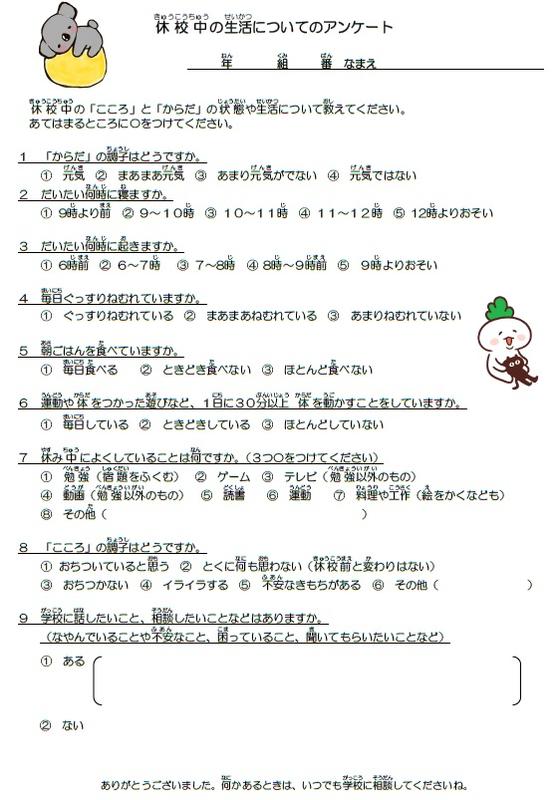 休校中の生活についてのアンケート
年 組 番 なまえ
休校中の「こころ」と「からだ」の状態や生活について教えてください。
あてはまるところに○をつけてください。
1 「からだ」の調子はどうですか。
① 元気 ② まあまあ元気 ③ あまり元気がでない ④ 元気ではない
2 だいたい何時に寝ますか。
① 9時より前 ② 9～10時 ③ 10～11時 ④ 11～12時 ⑤ 12時よりおそい
3 だいたい何時に起きますか。
① 6時前 ② 6～7時 ③ 7～8時 ④ 8時～9時前 ⑤ 9時よりおそい
4 毎日ぐっすりねむれていますか。
① ぐっすりねむれている ② まあまあねむれている ③ あまりねむれていない
5 朝ごはんを食べていますか。
① 毎日食べる ② ときどき食べない ③ ほとんど食べない
6 運動や体をつかった遊びなど、1日に30分以上 体を動かすことをしていますか。
① 毎日している ② ときどきしている ③ ほとんどしていない
7 休み中によくしていることは何ですか。（3つ○をつけてください）
① 勉強（宿題をふくむ） ② ゲーム ③ テレビ（勉強以外のもの）
④ 動画（勉強以外のもの） ⑤ 読書 ⑥ 運動 ⑦ 料理や工作（絵をかくなども）
⑧ その他（ ）
8 「こころ」の調子はどうですか。
① おちついていると思う ② とくに何も思わない（休校前と変わりはない）
③ おちつかない ④ イライラする ⑤ 不安なきもちがある ⑥ その他（ ）
9 学校に話したいこと、相談したいことなどはありますか。
（なやんでいることや不安なこと、困っていること、聞いてもらいたいことなど）
① ある
② ない
ありがとうございました。何かあるときは、いつでも学校に相談してくださいね。